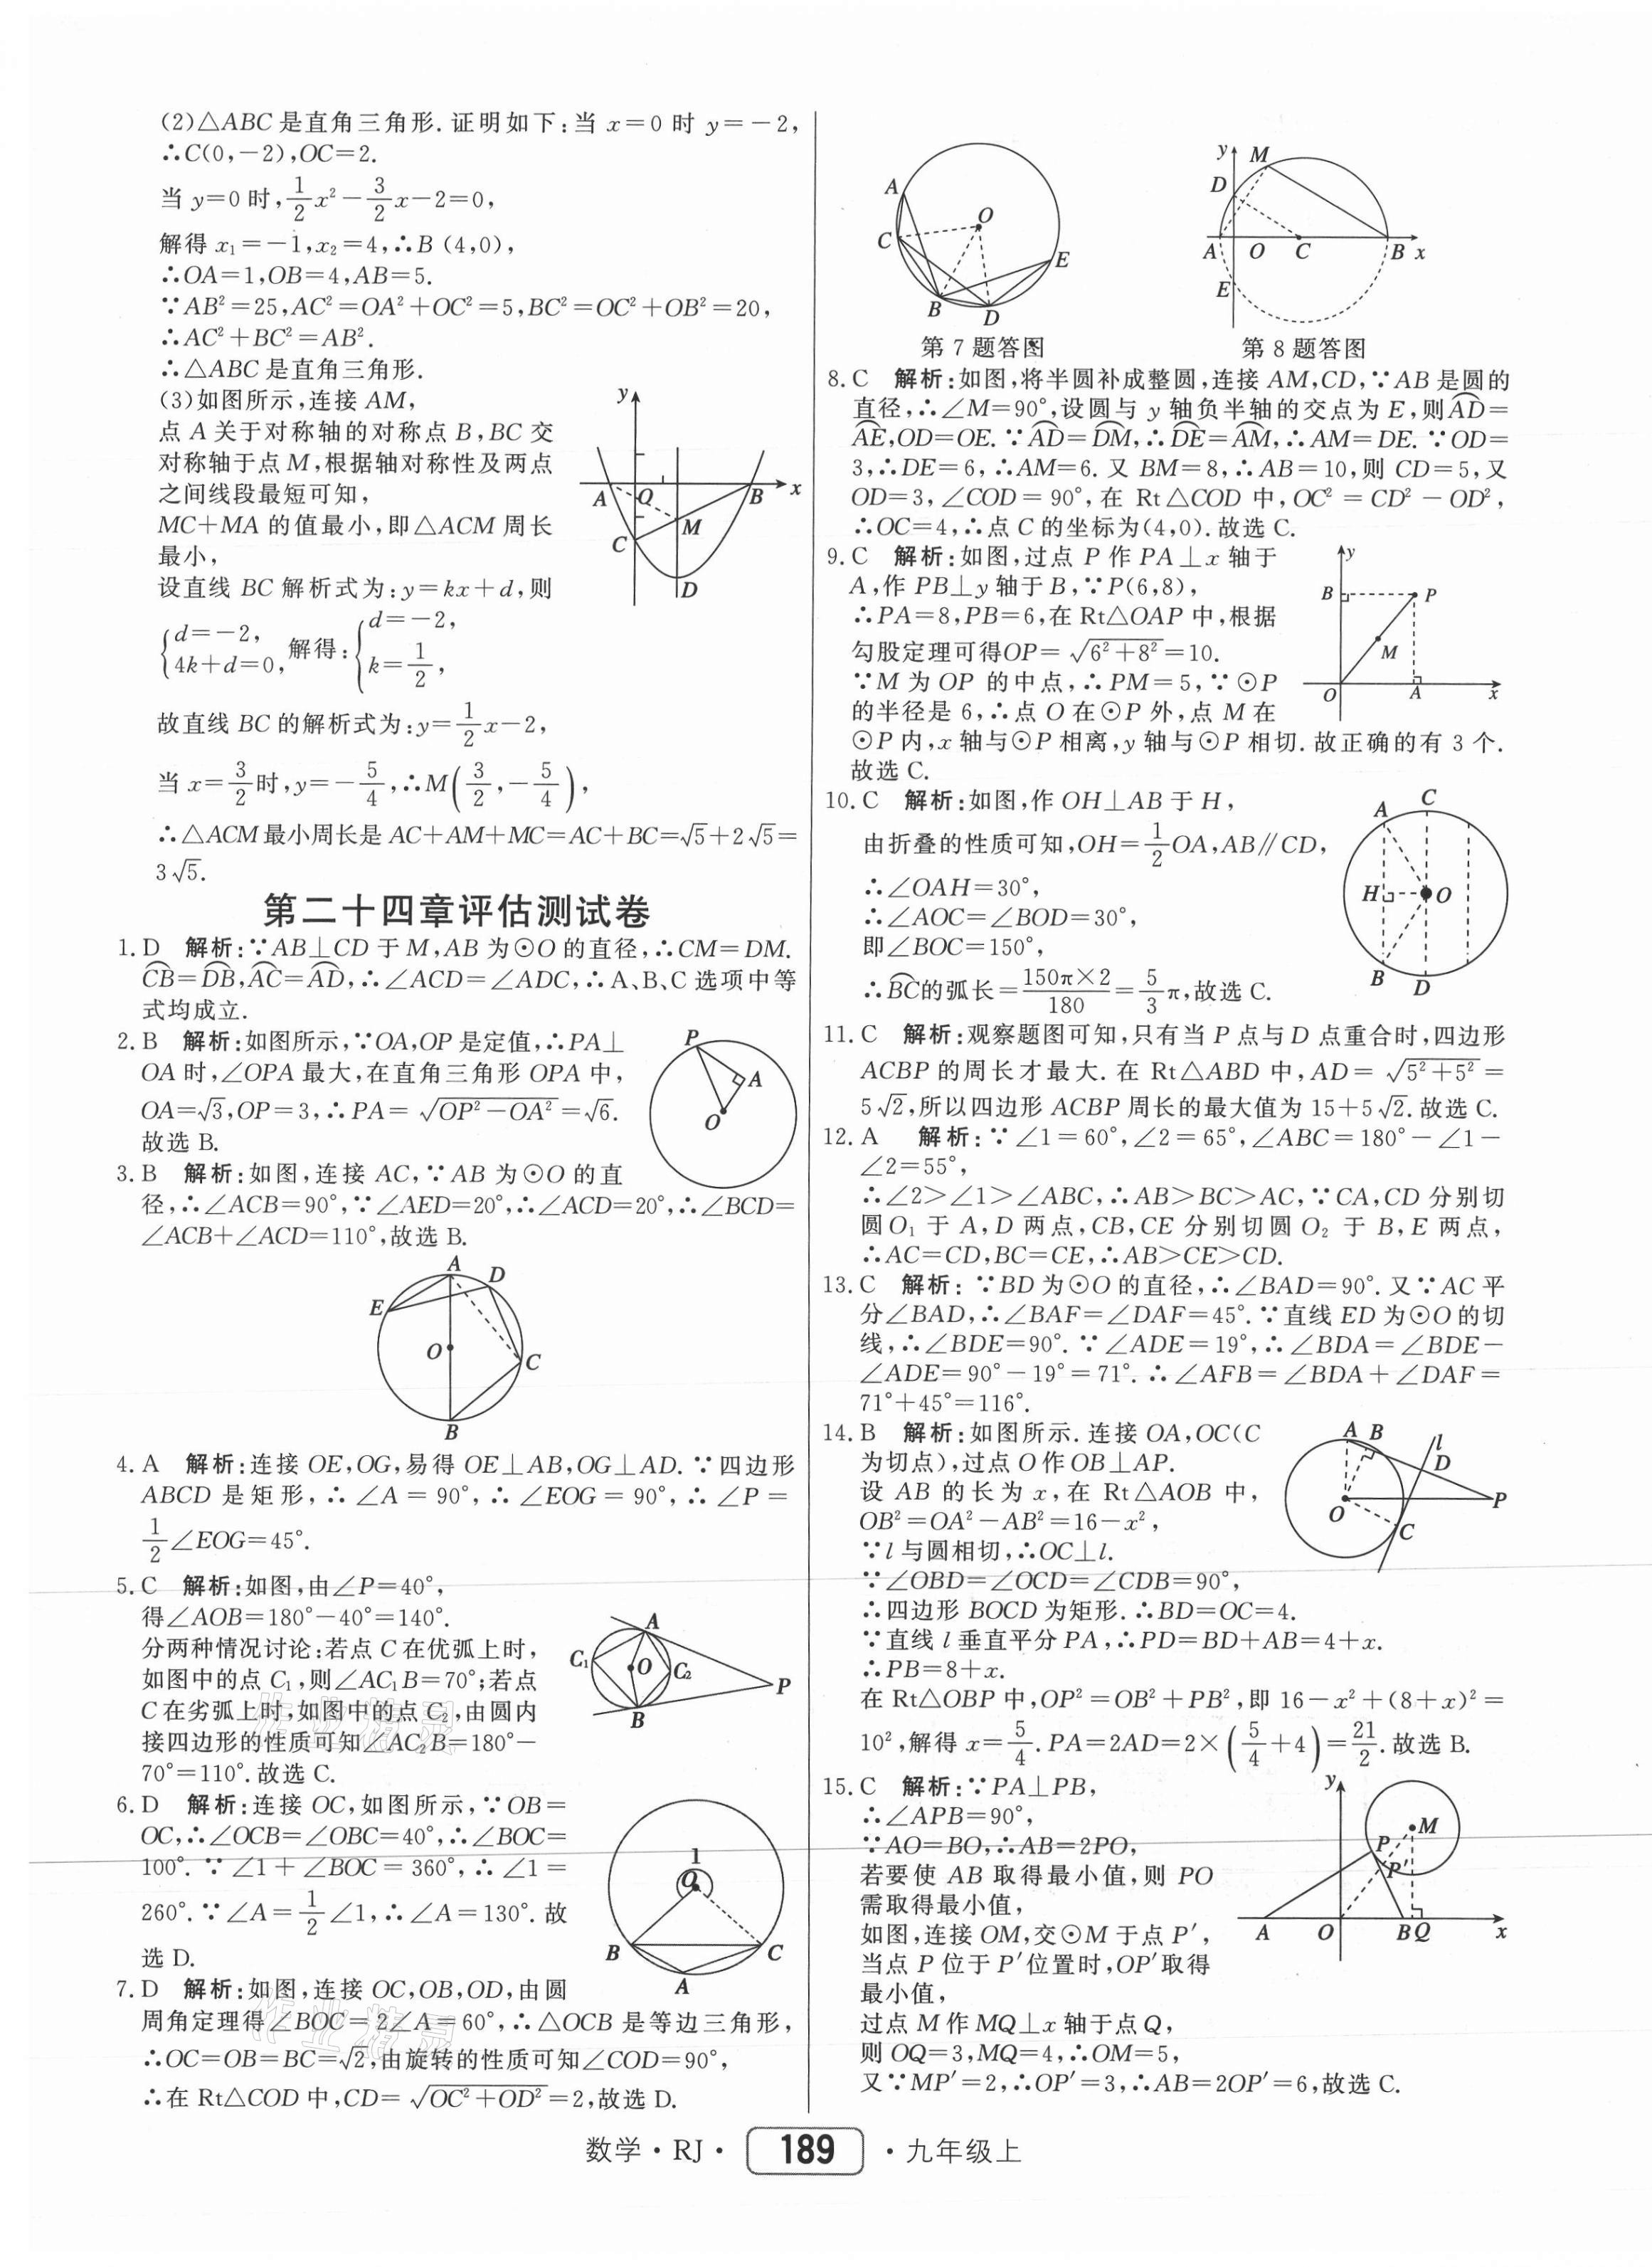 (2)△ABC是直角三角形.证明如下:当x=0时y=-2,
∴C(0,-2),OC=2.
当y=0时,\frac{1}{2}x²-\frac{3}{2}x-2=0,
解得x₁=-1,x₂=4,∴B(4,0),
∴OA=1,OB=4,AB=5.
∵AB²=25,AC²=OA²+OC²=5,BC²=OC²+OB²=20,
∴AC²+BC²=AB².
∴△ABC是直角三角形.
(3)如图所示,连接AM,
点A关于对称轴的对称点B,BC交
对称轴于点M,根据轴对称性及两点
之间线段最短可知,
MC+MA的值最小,即△ACM周长
最小,
设直线BC解析式为:y=kx+d,则
{d=-2, 4k+d=0, 解得:{d=-2, k=\frac{1}{2},
故直线BC的解析式为:y=\frac{1}{2}x-2,
当x=\frac{3}{2}时,y=-\frac{5}{4},∴M(\frac{3}{2},-\frac{5}{4}),
∴△ACM最小周长是AC+AM+MC=AC+BC=√5+2√5=
3√5.
y
A
Q
B
x
M
C
D
第二十四章评估测试卷
1.D 解析:∵AB⊥CD于M,AB为⊙O的直径,∴CM=DM.
⌒CB=⌒DB,⌒AC=⌒AD,∴∠ACD=∠ADC,∴A、B、C选项中等
式均成立.
2.B 解析:如图所示,∵OA,OP是定值,∴PA⊥
OA时,∠OPA最大,在直角三角形OPA中,
OA=√3,OP=3,∴PA=√(OP²-OA²)=√6.
故选B.
P
A
O
3.B 解析:如图,连接AC,∵AB为⊙O的直
径,∴∠ACB=90°,∵∠AED=20°,∴∠ACD=20°,∴∠BCD=
∠ACB+∠ACD=110°,故选B.
A
D
E
O
C
B
4.A 解析:连接OE,OG,易得OE⊥AB,OG⊥AD.∵四边形
ABCD是矩形,∴∠A=90°,∴∠EOG=90°,∴∠P=
\frac{1}{2}∠EOG=45°.
5.C 解析:如图,由∠P=40°,
得∠AOB=180°-40°=140°.
分两种情况讨论:若点C在优弧上时,
如图中的点C₁,则∠AC₁B=70°;若点
C在劣弧上时,如图中的点C₂,由圆内
接四边形的性质可知∠AC₂B=180°-
70°=110°.故选C.
A
C₁
O
C₂
P
B
6.D 解析:连接OC,如图所示,∵OB=
OC,∴∠OCB=∠OBC=40°,∴∠BOC=
100°.∵∠1+∠BOC=360°,∴∠1=
260°.∵∠A=\frac{1}{2}∠1,∴∠A=130°.故
选D.
1
O
B
C
A
7.D 解析:如图,连接OC,OB,OD,由圆
周角定理得∠BOC=2∠A=60°,∴△OCB是等边三角形,
∴OC=OB=BC=√2,由旋转的性质可知∠COD=90°,
∴在Rt△COD中,CD=√(OC²+OD²)=2,故选D.
作业精灵
作业精灵
A
O
C
E
B
D
第7题答图
y
M
D
A
O
C
B
x
E
第8题答图
8.C 解析:如图,将半圆补成整圆,连接AM,CD,∵AB是圆的
直径,∴∠M=90°,设圆与y轴负半轴的交点为E,则⌒AD=
⌒AE,OD=OE.∵⌒AD=⌒DM,∴⌒DE=⌒AM,∴AM=DE.∵OD=
3,∴DE=6,∴AM=6.又BM=8,∴AB=10,则CD=5,又
OD=3,∠COD=90°,在Rt△COD中,OC²=CD²-OD²,
∴OC=4,∴点C的坐标为(4,0).故选C.
9.C 解析:如图,过点P作PA⊥x轴于
A,作PB⊥y轴于B,∵P(6,8),
∴PA=8,PB=6,在Rt△OAP中,根据
勾股定理可得OP=√(6²+8²)=10.
∵M为OP的中点,∴PM=5,∵⊙P
的半径是6,∴点O在⊙P外,点M在
⊙P内,x轴与⊙P相离,y轴与⊙P相切.故正确的有3个.
故选C.
y
B
P
M
O
A
x
10.C 解析:如图,作OH⊥AB于H,
由折叠的性质可知,OH=\frac{1}{2}OA,AB∥CD,
∴∠OAH=30°,
∴∠AOC=∠BOD=30°,
即∠BOC=150°,
∴⌒BC的弧长=\frac{150π×2}{180}=\frac{5}{3}π,故选C.
A
C
H
O
B
D
11.C 解析:观察题图可知,只有当P点与D点重合时,四边形
ACBP的周长才最大.在Rt△ABD中,AD=√(5²+5²)=
5√2,所以四边形ACBP周长的最大值为15+5√2.故选C.
12.A 解析:∵∠1=60°,∠2=65°,∠ABC=180°-∠1-
∠2=55°,
∴∠2>∠1>∠ABC,∴AB>BC>AC,∵CA,CD分别切
圆O₁于A,D两点,CB,CE分别切圆O₂于B,E两点,
∴AC=CD,BC=CE,∴AB>CE>CD.
13.C 解析:∵BD为⊙O的直径,∴∠BAD=90°.又∵AC平
分∠BAD,∴∠BAF=∠DAF=45°.∵直线ED为⊙O的切
线,∴∠BDE=90°.∵∠ADE=19°,∴∠BDA=∠BDE-
∠ADE=90°-19°=71°.∴∠AFB=∠BDA+∠DAF=
71°+45°=116°.
14.B 解析:如图所示.连接OA,OC(C
为切点),过点O作OB⊥AP.
设AB的长为x,在Rt△AOB中,
OB²=OA²-AB²=16-x²,
∵l与圆相切,∴OC⊥l.
∵∠OBD=∠OCD=∠CDB=90°,
∴四边形BOCD为矩形.∴BD=OC=4.
∵直线l垂直平分PA,∴PD=BD+AB=4+x.
∴PB=8+x.
在Rt△OBP中,OP²=OB²+PB²,即16-x²+(8+x)²=
10²,解得x=\frac{5}{4}.PA=2AD=2×(\frac{5}{4}+4)=\frac{21}{2}.故选B.
A
B
l
D
O
P
C
15.C 解析:∵PA⊥PB,
∴∠APB=90°,
∵AO=BO,∴AB=2PO,
若要使AB取得最小值,则PO
需取得最小值,
如图,连接OM,交⊙M于点P′,
当点P位于P′位置时,OP′取得
最小值,
过点M作MQ⊥x轴于点Q,
则OQ=3,MQ=4,∴OM=5,
又∵MP′=2,∴OP′=3,∴AB=2OP′=6,故选C.
y
M
P
P′
A
O
B
Q
x
数学·RJ· 189 ·九年级上